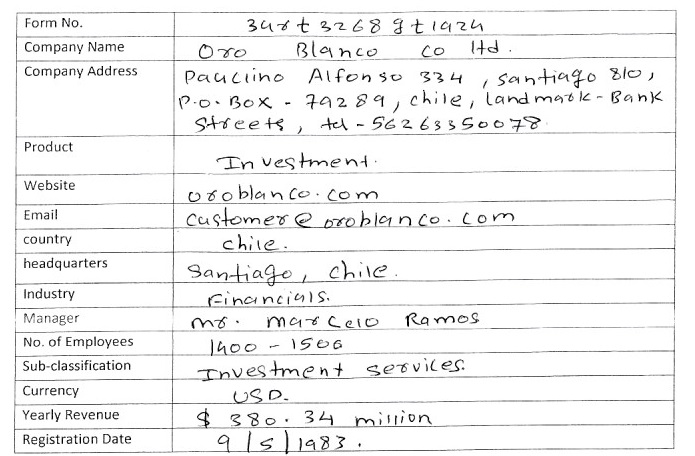 Form No. 34rt3268gt1924
Company Name Oro Blanco co ltd.
Company Address Pauclino Alfonso 334, Santiago 810,
P.O. Box - 79289, chile, landmark - Bank
Streets, tel - 56263350078.
Product Investment.
Website oroblanco.com
Email customer@oroblanco.com
country chile.
headquarters Santiago, chile.
Industry Financials.
Manager mr. marcelo Ramos
No. of Employees 1400 - 1500
Sub-classification Investment services.
Currency USD.
Yearly Revenue $ 380.34 million
Registration Date 9/5/1983.